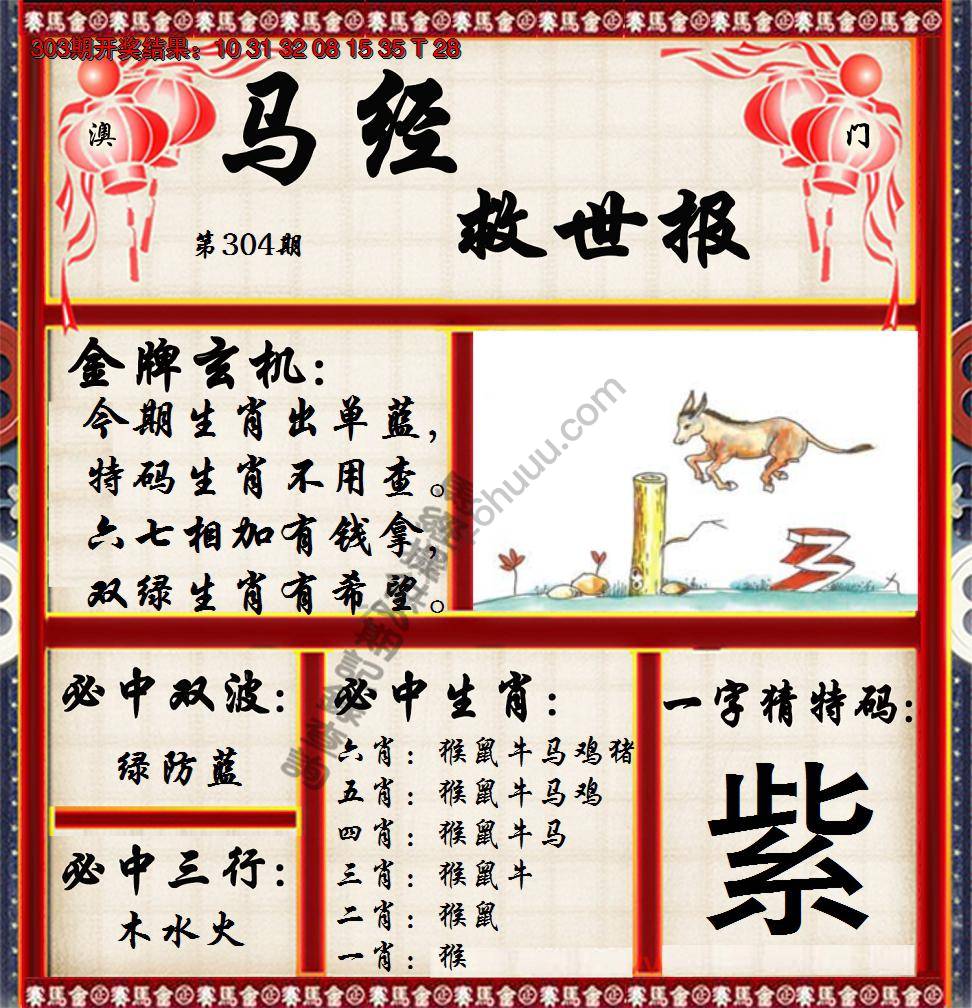 303期开奖结果：10 31 32 08 15 35 T 28
澳
门
马经
救世报
第304期
金牌玄机：
今期生肖出单蓝，
特码生肖不用查。
六七相加有钱拿，
双绿生肖有希望。
必中双波：
绿防蓝
必中三行：
木水火
必中生肖：
六肖：猴鼠牛马鸡猪
五肖：猴鼠牛马鸡
四肖：猴鼠牛马
三肖：猴鼠牛
二肖：猴鼠
一肖：猴
一字猜特码：
紫